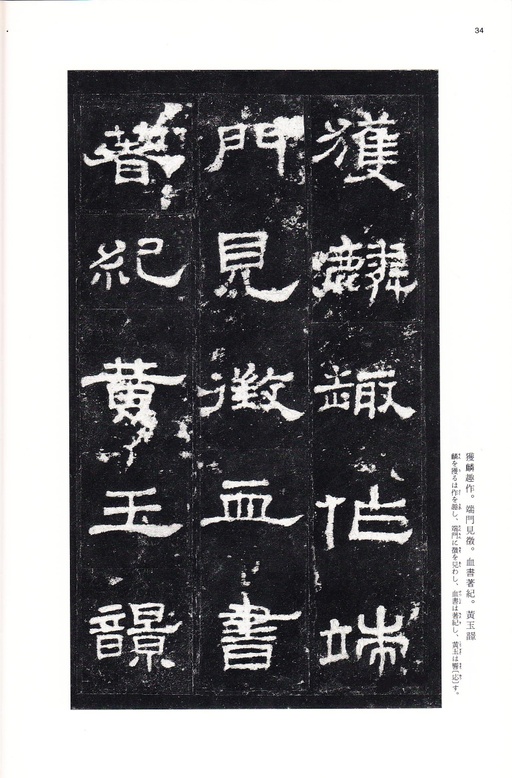 34
獲麟趣作端
門見徵血書
著紀黃玉
獲麟趣作。端門見徵。血書著紀。黃玉
麟を獲るは作を趣し、端門に徵を見わし、血書は著紀し、黃玉は響〔応〕す。